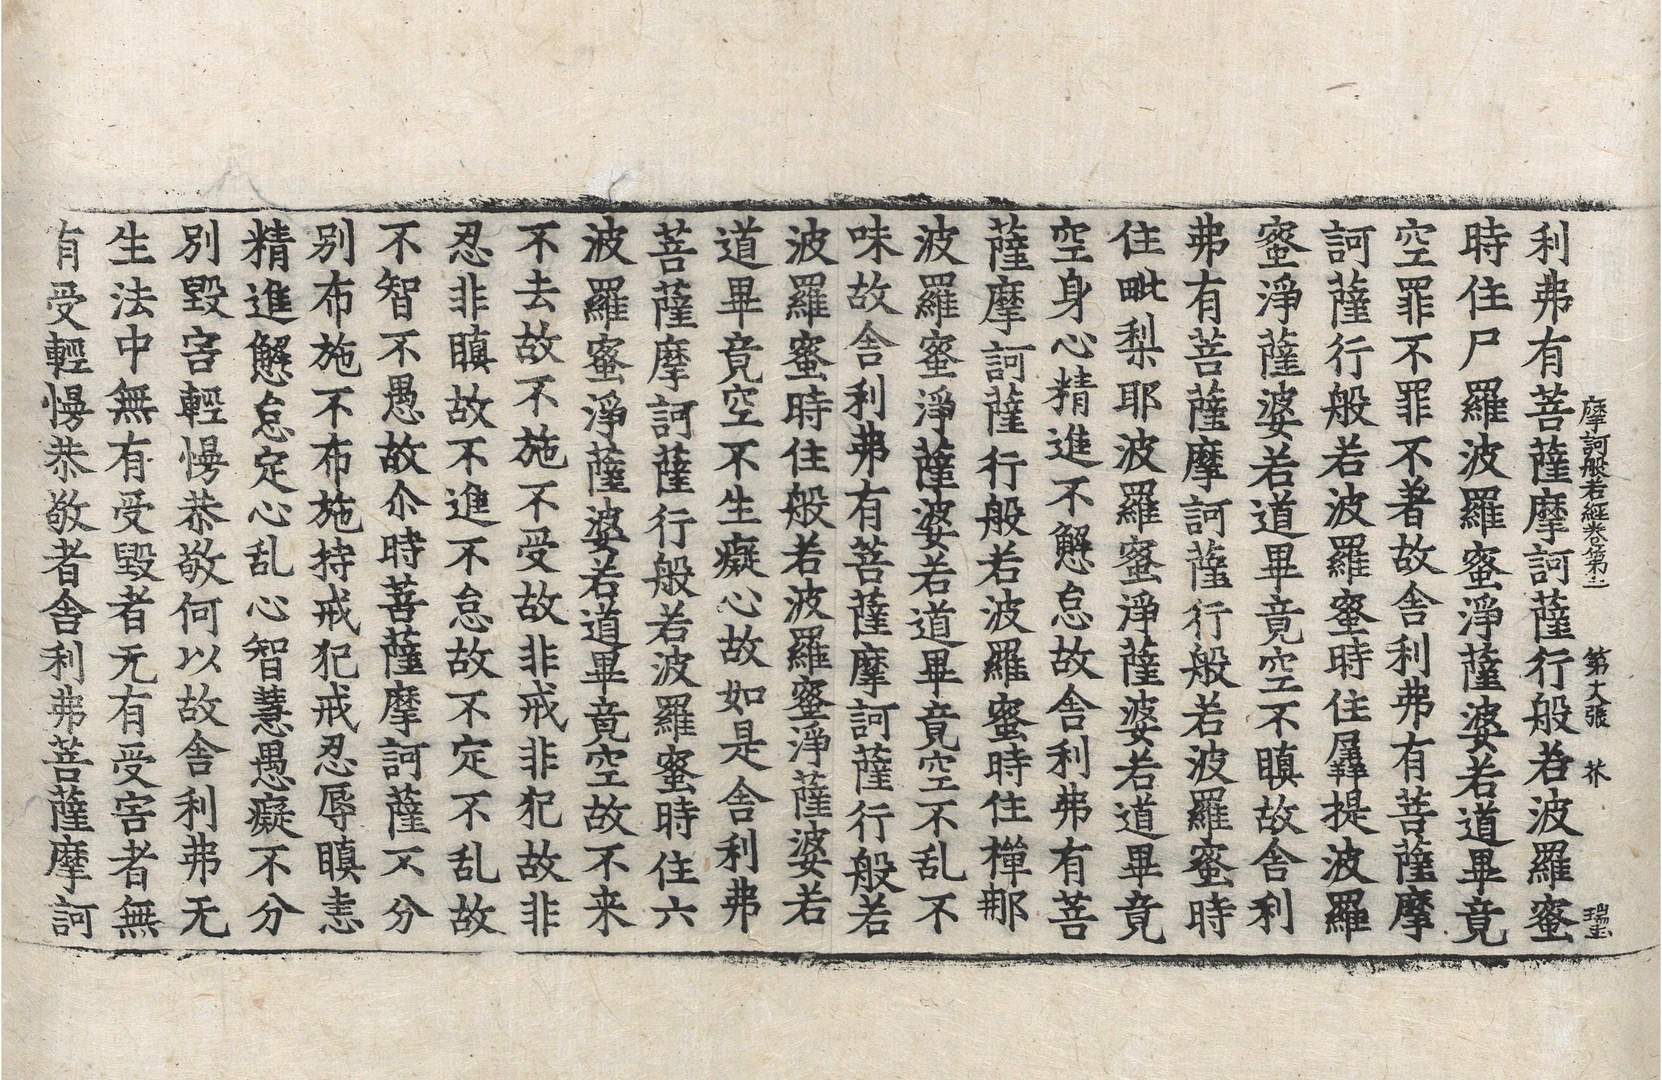 摩訶般若經卷第二　第大張　芥　瑞圭
利弗有菩薩摩訶薩行般若波羅蜜
時住尸羅波羅蜜淨薩婆若道畢竟
空罪不罪不著故舍利弗有菩薩摩
訶薩行般若波羅蜜時住羼提波羅
蜜淨薩婆若道畢竟空不瞋故舍利
弗有菩薩摩訶薩行般若波羅蜜時
住毗梨耶波羅蜜淨薩婆若道畢竟
空身心精進不懈怠故舍利弗有菩
薩摩訶薩行般若波羅蜜時住禪那
波羅蜜淨薩婆若道畢竟空不乱不
味故舍利弗有菩薩摩訶薩行般若
波羅蜜時住般若波羅蜜淨薩婆若
道畢竟空不生癡心故如是舍利弗
菩薩摩訶薩行般若波羅蜜時住六
波羅蜜淨薩婆若道畢竟空故不来
不去故不施不受故非戒非犯故非
忍非瞋故不進不怠故不定不乱故
不智不愚故尒時菩薩摩訶薩不分
別布施不布施持戒犯戒忍辱瞋恚
精進懈怠定心乱心智慧愚癡不分
別毀害輕慢恭敬何以故舍利弗无
生法中無有受毀者无有受害者無
有受輕慢恭敬者舍利弗菩薩摩訶